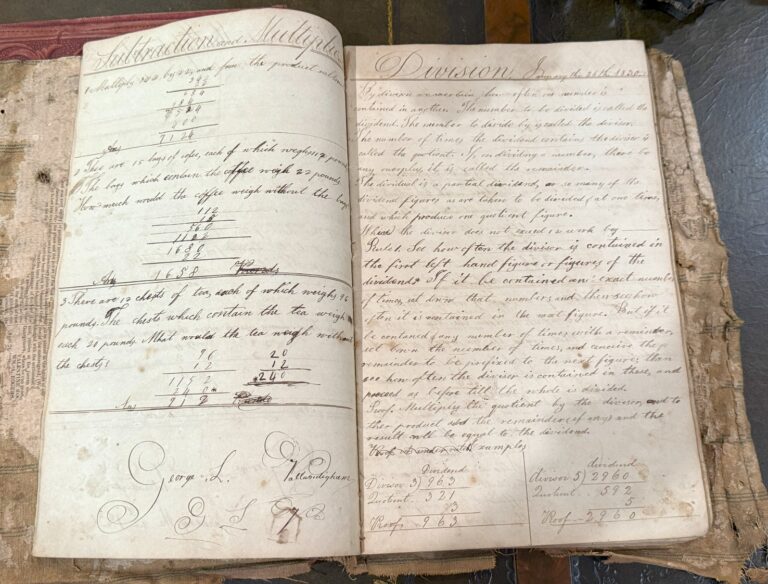 Subtraction and Multiplic
1 Multiply by and from the product
234
9360
7126
Ans
2 There are 15 bags of coffee, each of which weighs 112 pounds
The bags which contain the coffee weigh 22 pounds.
How much would the coffee weigh without the bags
112
15
560
112
1680
22
Ans 1658 Pounds
3 There are 12 chests of tea, each of which weighs 96
pounds. The chests which contain the tea weigh
each 20 pounds What would the tea weigh without
the chests?
96 20
12 12
1152 240
240
Ans 912 Pounds
George. L. Vallandigham
G L V
Division January the 26th 1830
By division we ascertain how often one number is
contained in another. The number to be divided is called the
dividend. The number to divide by is called the divisor
The number of times the dividend contains the divisor is
called the quotient. If, in dividing a number, there be
any overplus, it is called the remainder.
The dividual is a partial dividend, or so many of the
dividend figures as are taken to be divided at one time,
and which produce one quotient figure.
When the divisor does not exceed 12 work by
Rule 1. See how often the divisor is contained in
the first left hand figure or figures of the
dividend. If it be contained an exact number
of times, set down that number, and then see how
often it is contained in the next figure. But if it
be contained any number of times, with a remainder,
set down the number of times, and conceive the
remainder to be prefixed to the next figure; then
see how often the divisor is contained in these, and
proceed as before till the whole is divided
Proof. Multiply the quotient by the divisor, and to
the product add the remainder (if any) and the
result will be equal to the dividend.
examples
Dividend
Divisor 3) 963
Quotient. 321
3
Proof - 963
dividend
divisor 5) 2960
Quotient. 592
5
Proof - 2960